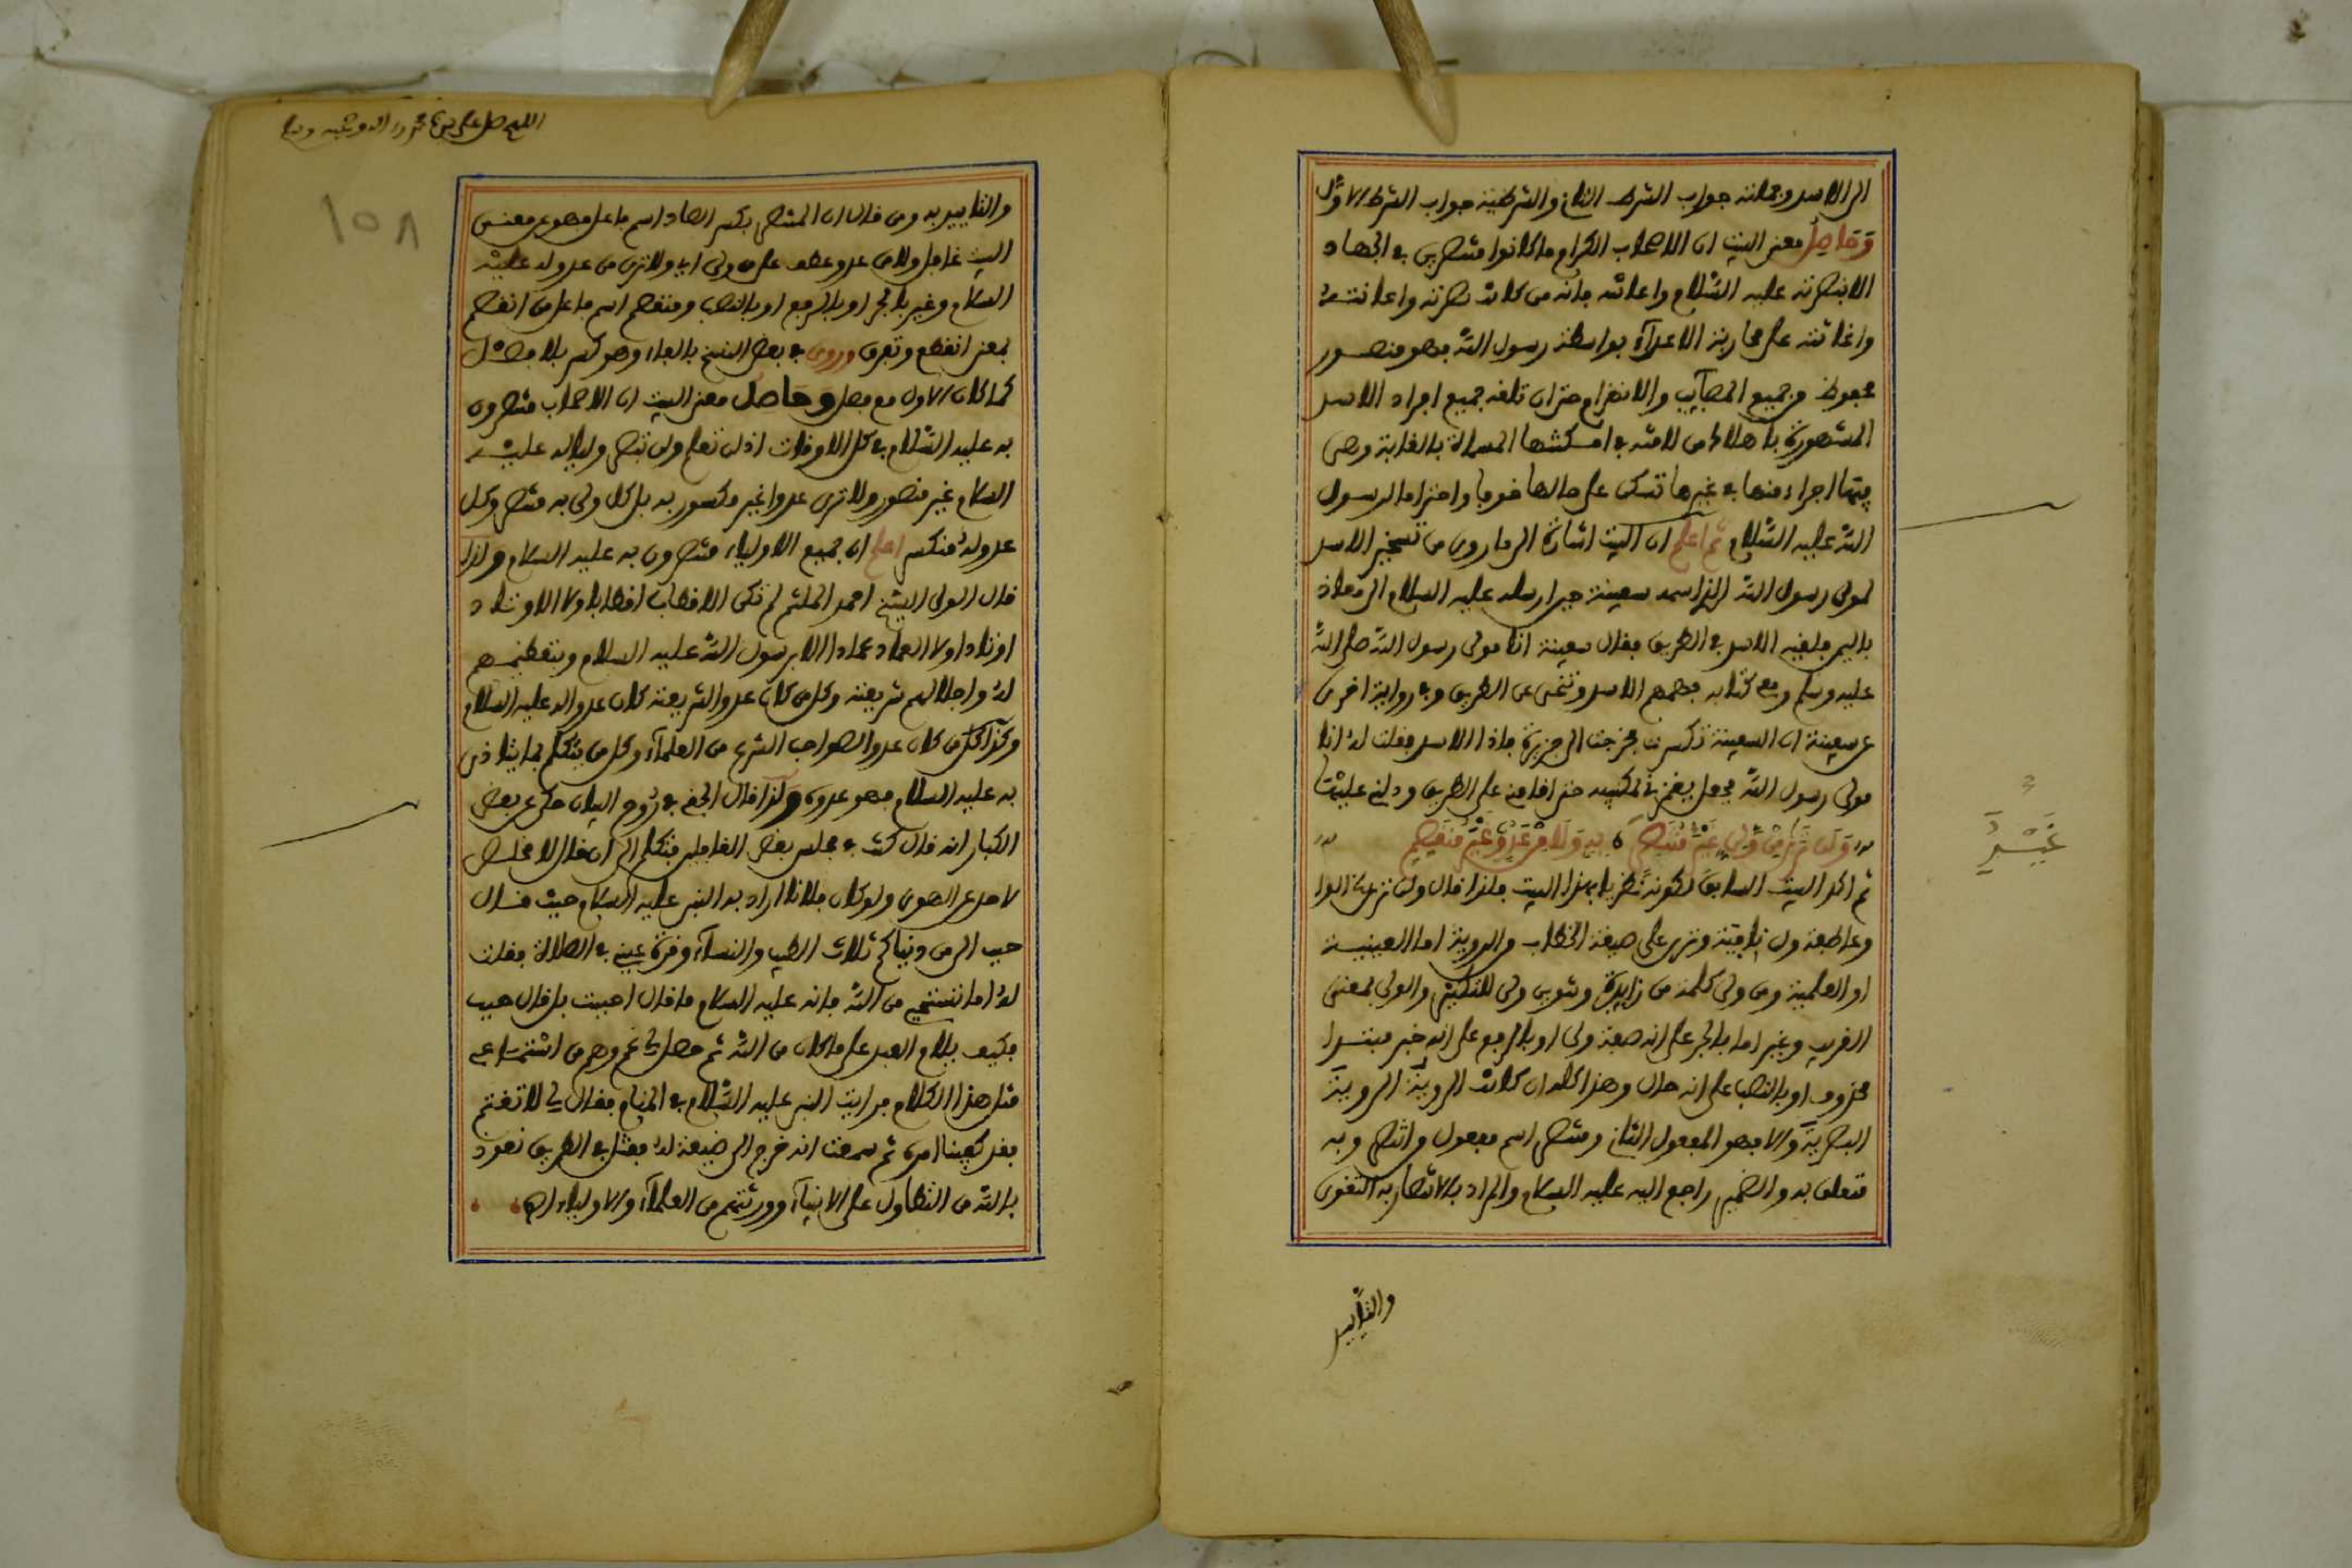 الى الاسد وجملته جواب الشرط الثانى والشرطية جواب الشرط الاول
وَحَاصِلُ معنى البيت ان الاصحاب الكرام ما كانوا منتصرين فى الجهاد
الا بنصرته عليه السّلام واعانته فانه من كانت نصرته واعانته
واغاثته على محاربة الاعدآء بواسطة رسول اللّه فهو منصور
محفوظ من جميع المصآيب والانهزام حتى ان تلقه جميع افراد الاسد
المشهورة باهلاك من لاقته فى امكنتها المسماة بالغابة وهى
اجراء منها فى غيرها تسكن على حالها خوفا واحتراما لرسول
اللّه عليه السّلام ثم اعلم ان البيت اشارة الى ما روى من تسخير الاسد
لمولى رسول اللّه الذى اسمه سفينة حين ارسله عليه السلام الى معاذ
باليمن فلقيه الاسد فى الطريق فقال سفينة انا مولى رسول اللّه صلى اللّه
عليه وسلم ومعى كتابه فهمهم الاسد وتنحى عن الطريق وفى رواية اخرى
عن سفينة ان السفينة تكسرت فخرجت الى جزيرة فاذا الاسد فقلت لهُ انا
مولى رسول اللّه فجعل يغمزنى بمنكبيه حتى اقامنى على الطريق
وَلَن تَرٰى مِنْ وَّلِىٍّ غَيْرَ مُنْتَصِرٍ ٥ بِهِ وَلَا مِنْ عَدُوٍّ غَيْرَ مُنْقَصِمِ
ثم اكد البيت السابق بهذا البيت فلذا قال ولن ترى الواو
وعاطفة ولن نافية وترى على صيغة الخطاب والروية اما العينية
او العلمية ومن ولى كلمة من زايدة وتنوين ولى للتكثير والولى بمعنى
القريب وغير اما بالجر على انه صفة ولى او بالرفع على انه خبر مبتدا
محذوف او بالنصب على انه حال وهذا كله ان كانت الروية الروية
البصرية والا فهو المفعول الثانى ومنتصر اسم مفعول من انتصر وبه
متعلق به والضمير راجع اليه عليه السلام والمراد بالانتصار به التقوى
والتأييد
غَيْرَ
اللهم صل على سيدنا محمد وآله وصحبه وسلم
١٥٨
والتاييد به ومن قال ان المنتصر بكسر الصاد اسم فاعل فهو عن معنى
البيت غافل ولا من عدو عطف على من ولى اى ولا ترى من عدو له عليه
السلام وغير بالجر او بالرفع او بالنصب ومنقصم اسم فاعل من انقصم
بمعنى انقطع وتفرق وروى فى بعض النسخ بالفاء وهو كسر بلا فصل
كما كان الاول مع فصل وحاصل معنى البيت ان الاصحاب منتصرون
به عليه السّلام فى كل الاوقات اذ لن تعلم ولن تبصر وليا له عليه
السلام غير منصور ولا ترى عدوا غير مكسور به بل كل ولى به منتصر وكل
عدو لهُ منكسر اعلم ان جميع الاولياء منتصرون به عليه السلام ولذا
قال الولى الشيخ احمد الملثم لم تكن الاقطاب اقطابا ولا الاوتاد
اوتادا ولا العماد عمادا الا برسول اللّه عليه السلام وبتعظيمهم
لهُ واجلالهم شريعته وكل من كان عدوا لشريعته كان عدوا له عليه السلام
وكذا كل من كان عدوا لصواحب الشرع من العلمآء وكل من يتكلم بما يتاذى
به عليه السلام فهو عدوه وَلذا قال فى رُوح البيان حكى عن بعض
الكبار انه قال كنت فى مجلس بعض الغافلين فتكلم الى ان قال لا مخلص
لاحد عن الهوى ولو كان فلانا اراد به النبى عليه السلام حيث قال
حبب الى من دنياكم ثلاث الطيب والنسآء وقرة عينى فى الصلاة فقلت
لهُ اما تستحى من اللّه فانه عليه السلام ما قال احببت بل قال حبب
فكيف يلام العبد على ما كان من اللّه ثم حصل لى غم وهم من استماعى
مثل هذا الكلام فرايت النبى عليه السّلام فى المنام فقال لى لا تغتم
فقد كفينا امره ثم سمعت انه خرج الى ضيعة لهُ فقتل فى الطريق نعوذ
باللّه من التطاول على الانبيآء وورثتهم من العلمآء والاولياء اهـ